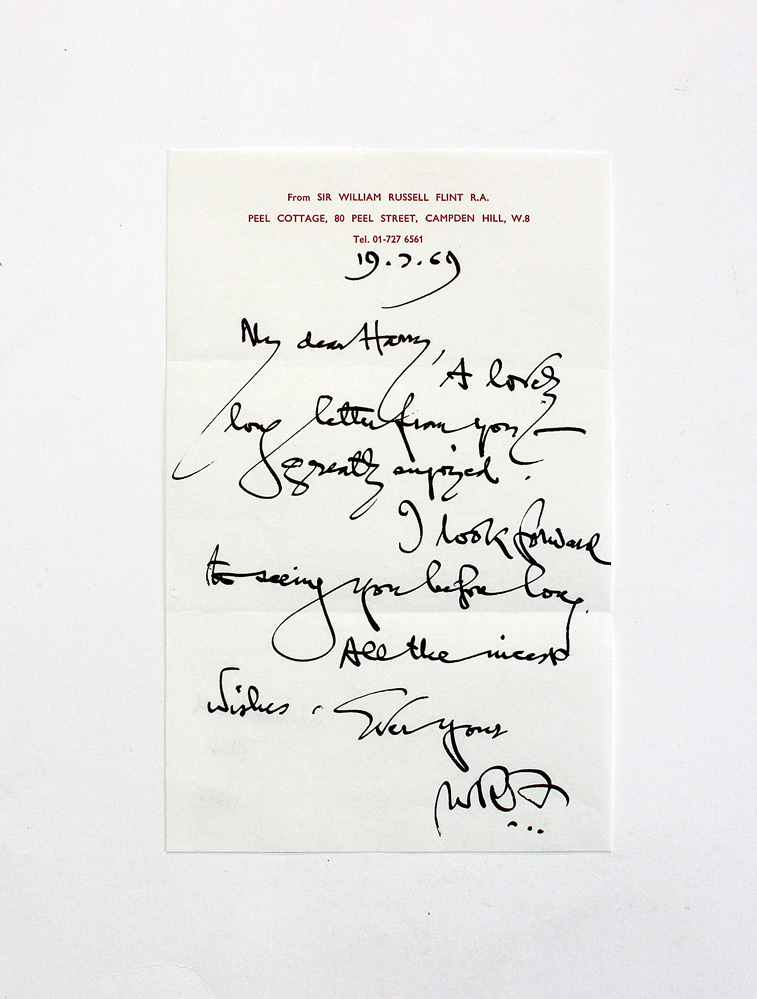 From SIR WILLIAM RUSSELL FLINT R.A.
PEEL COTTAGE, 80 PEEL STREET, CAMPDEN HILL, W.8
Tel. 01-727 6561
19.7.69
My dear Harry,
A lovely
long letter from you –
greatly enjoyed.
I look forward
to seeing you before long.
All the nicest
wishes. Ever yours
WRF...